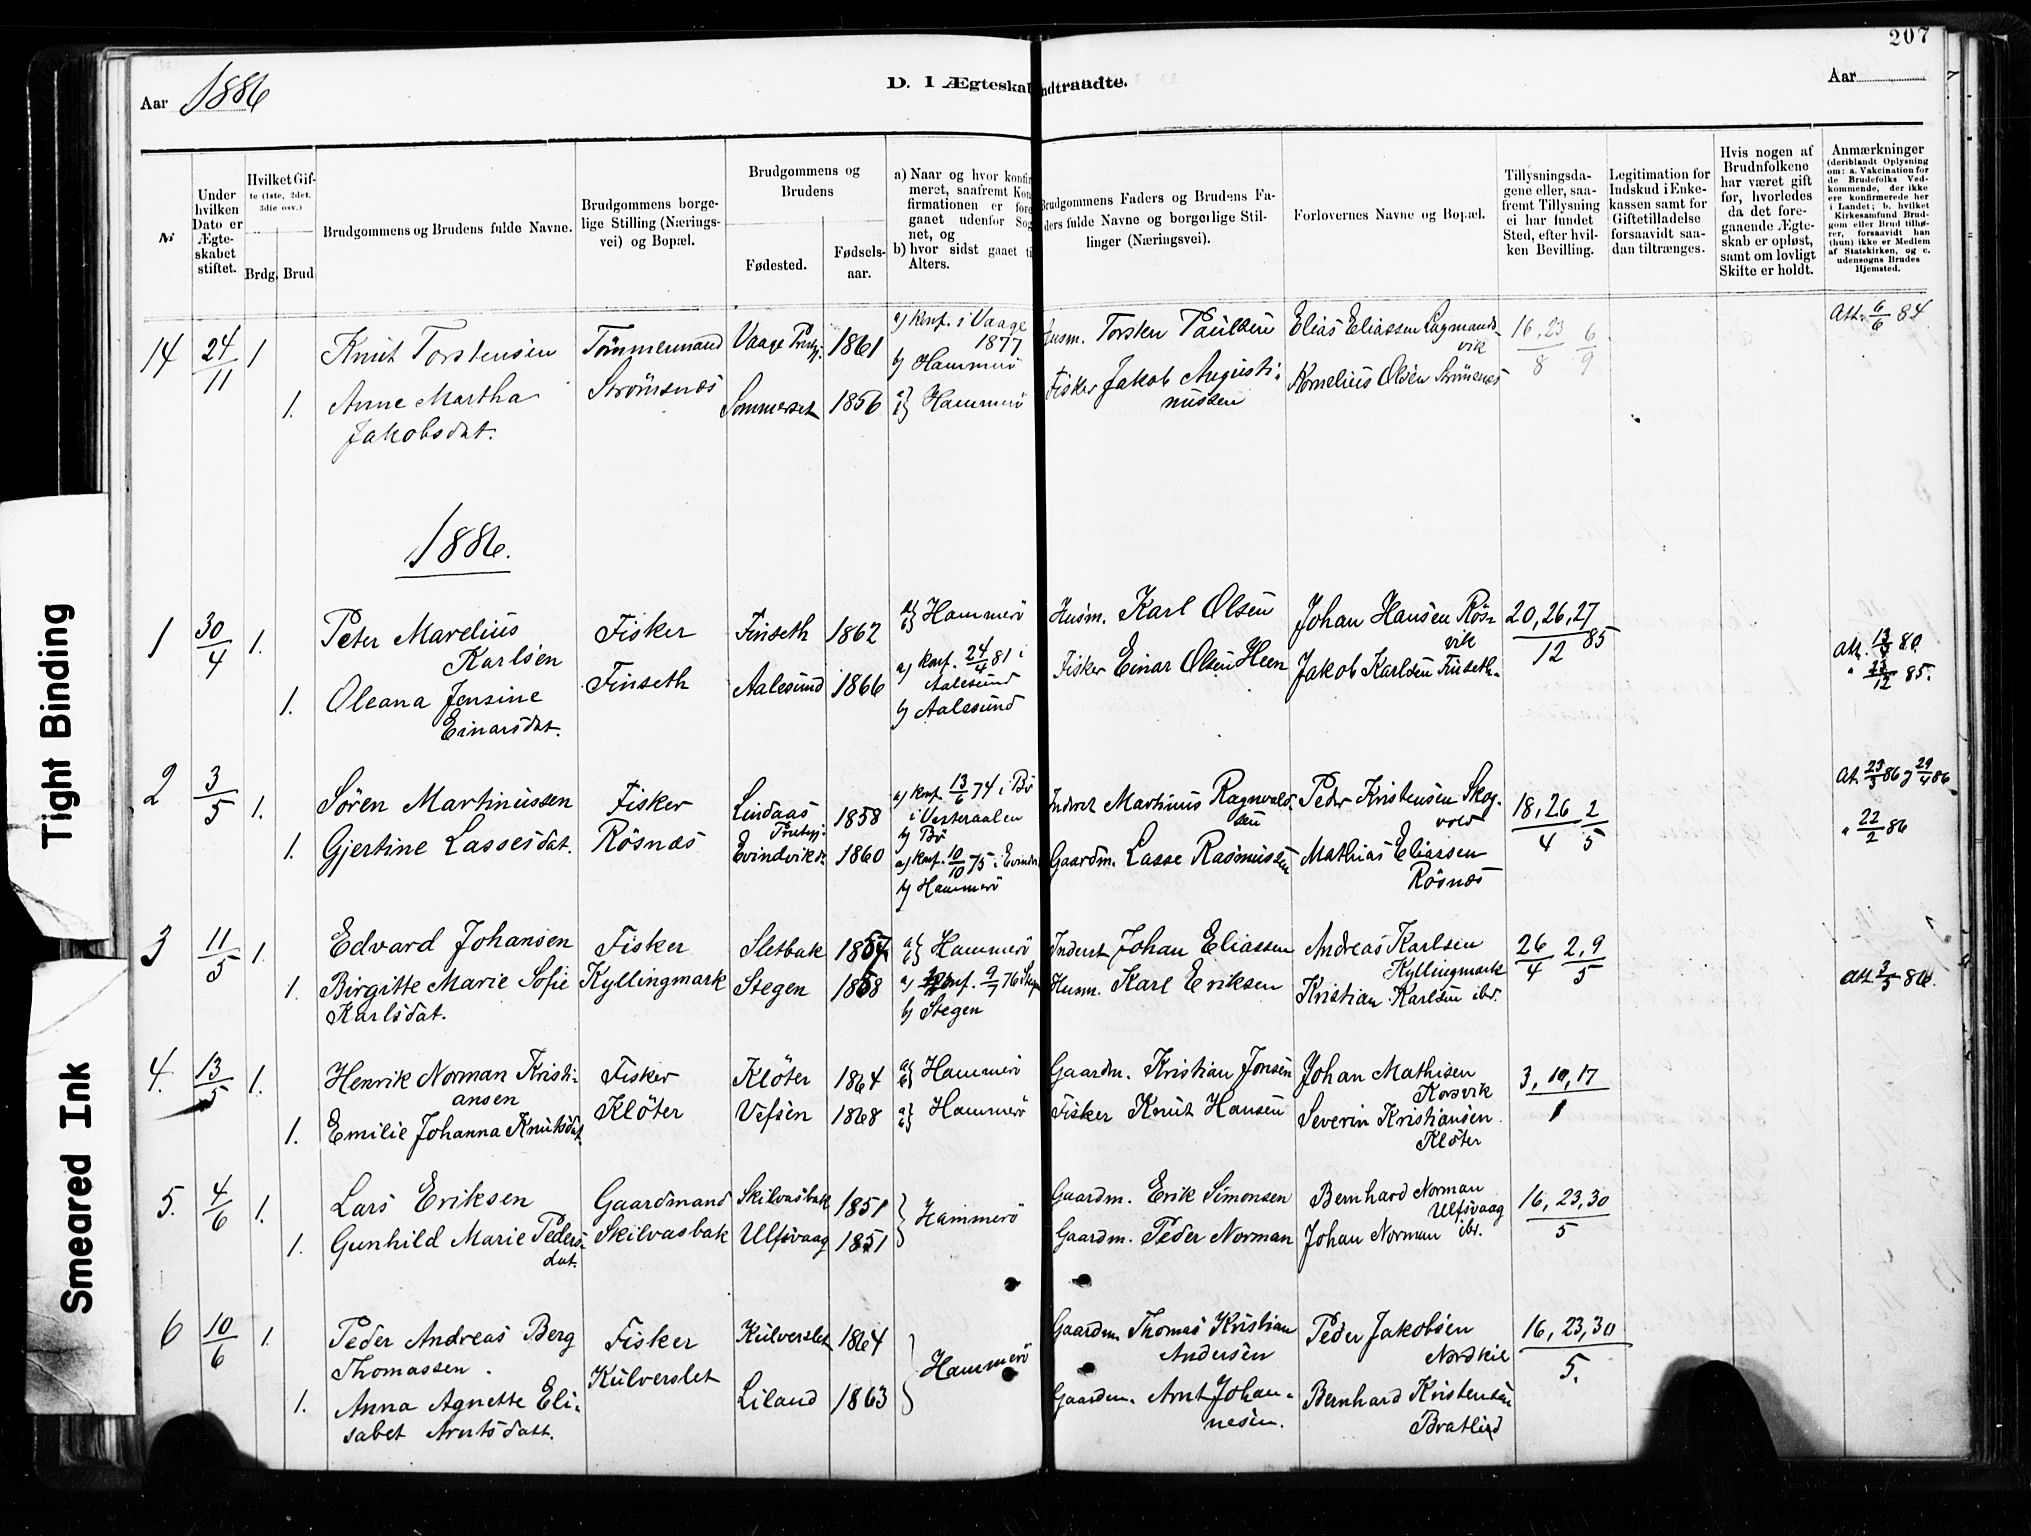 207
Aar 1886
D. I Ægteskab indtraadte.
Aar
№
Under hvilken Dato er Ægteskabet stiftet.
Hvilket Gifte (1ste, 2det, 3die osv.)
Brdg.
Brud.
Brudgommens og Brudens fulde Navne.
Brudgommens borgelige Stilling (Næringsvei) og Bopæl.
Brudgommens og Brudens
Fødested.
Fødselsaar.
a) Naar og hvor konfirmeret, saafremt Konfirmationen er foregaaet udenfor Sognet, og
b) hvor sidst gaaet til Alters.
Brudgommens Faders og Brudens Faders fulde Navne og borgerlige Stillinger (Næringsvei).
Forlovernes Navne og Bopæl.
Tillysningsdagene eller, saafremt Tillysning ei har fundet Sted, efter hvilken Bevilling.
Legitimation for Indskud i Enkekassen samt for Giftetilladelse forsaavidt saadan tiltrænges.
Hvis nogen af Brudnfolkene har været gift før, hvorledes da det foregaaende Ægteskab er opløst, samt om lovligt Skifte er holdt.
Anmærkninger
(deriblandt Oplysning om: a. Vakcination for de Brudefolks Vedkommende, der ikke ere konfirmerede her i Landet; b. hvilket Kirkesamfund Brudgom eller Brud tilhører, forsaavidt han (hun) ikke er Medlem af Statskirken, og c. udensogns Brudes Hjemsted.
14 24/11 1 Knut Torstensen Tömmermand Vaage Prstgj. 1861 a) Konf. i Vaage 1877 b) Hammerö Husm. Torsten Paulsen Elias Eliassen Lagmandsvik 16, 23/8 6/9 Att. 6/6 84
1. Anne Martha Jakobsdat. Strömsnæs Sommerset 1856 a) b) Hammerö Fisker Jakob Augustinussen Kornelius Olsen Strömsnæs
1886.
1 30/4 1. Peter Marelius Karlsen Fisker Finseth 1862 a) b) Hammerö Husm. Karl Olsen Johan Hansen Rösvik 20, 26, 27/12 85 Att. 80
1. Oleana Jensine Einarsdat. Finseth Aalesund 1866 a) Konf. 24/4 81 i Aalesund b) Aalesund Fisker Einar Olsen Heen Jakob Karlsen Finseth. " 85.
2 3/5 1. Sören Martinussen Fisker Lindaas Prstgj. 1858 a) Konf. 13/6 74 i Bö i Vesteraalen b) Bö Inderst Martinus Ragnvaldsen Peder Kristensen Skogvold 18, 26/4 2/5 At. 23/3 86 29/4 86
1. Gjertine Lassesdat. Rösnæs Evindvik 1860 a) Konf. 10/10 75 i Evindvik b) Hammerö Gaardm. Lasse Rasmussen Mathias Eliassen Rösnæs " 22/2 86
3 11/5 1. Edvard Johansen Fisker Sletbak 1857 a) b) Hammerö Inderst Johan Eliassen Andreas Karlsen Kyllingmark 26/4 2, 9/5
1. Birgitte Marie Sofie Karlsdat. Kyllingmark Stegen 1858 a) Konf. 9/7 76 Stegen b) Stegen Husm. Karl Eriksen Kristian Karlsen ibd. Att. 3/5 86.
4. 13/5 1. Henrik Norman Kristiansen Fisker Klöter 1864 a) b) Hammerö Gaardm. Kristian Jonsen Johan Mathisen Korsvik 3, 10, 17/1
1. Emilie Johanna Knutsdat. Klöter Vefsen 1868 a) b) Hammerö Fisker Knut Hansen Severin Kristiansen Klöter
5. 4/6 1. Lars Eriksen Gaardmand Skilvasbak 1851 Hammerö Gaardm. Erik Simonsen Bernhard Norman Ulfsvaag 16, 23, 30/5
1. Gunhild Marie Pedersdat. Skilvasbak Ulfsvaag 1851 Gaardm. Peder Norman Johan Norman ibd.
6 10/6 1. Peder Andreas Berg Thomassen. Fisker Kulverslet 1864 Hammerö Gaardm. Thomas Kristian Andersen Peder Jakobsen Nordkil 16, 23, 30/5.
1. Anna Agnette Elisabet Arntsdatt. Kulverslet Liland 1863 Gaardm. Arnt Johannesen. Bernhard Kristensen Bratlid
Tight Binding
Smeared Ink